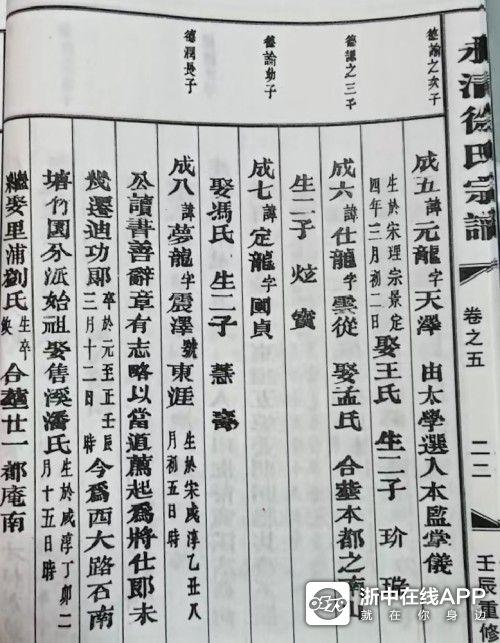 永清徐氏宗譜
卷之五
二二
壬辰重修
德諭之次子
成五諱元龍字天澤 由太學選入本監掌儀
生於宋理宗景定四年三月初二日 娶王氏 生二子 玠
德謀之三子
成六諱仕龍字雲從 娶孟氏 合塟本都之南
生二子 炫
德諭幼子
成七諱定龍字國貞
娶馮氏 生二子
德潤長子
成八諱夢龍字震澤號東涯 生於宋咸淳乙丑八月初五日時
公讀書善辭章有志略以當道薦起爲將仕郎未
幾遷迪功郎 卒於元至正壬辰三月十二日 時 今爲西大路石南
塘竹園分派始祖娶售溪潘氏 生於咸淳丁卯二月十五日時
繼娶里浦劉氏 生卒失 合塟廿一都庵南
浙中在线APP
就在你身边